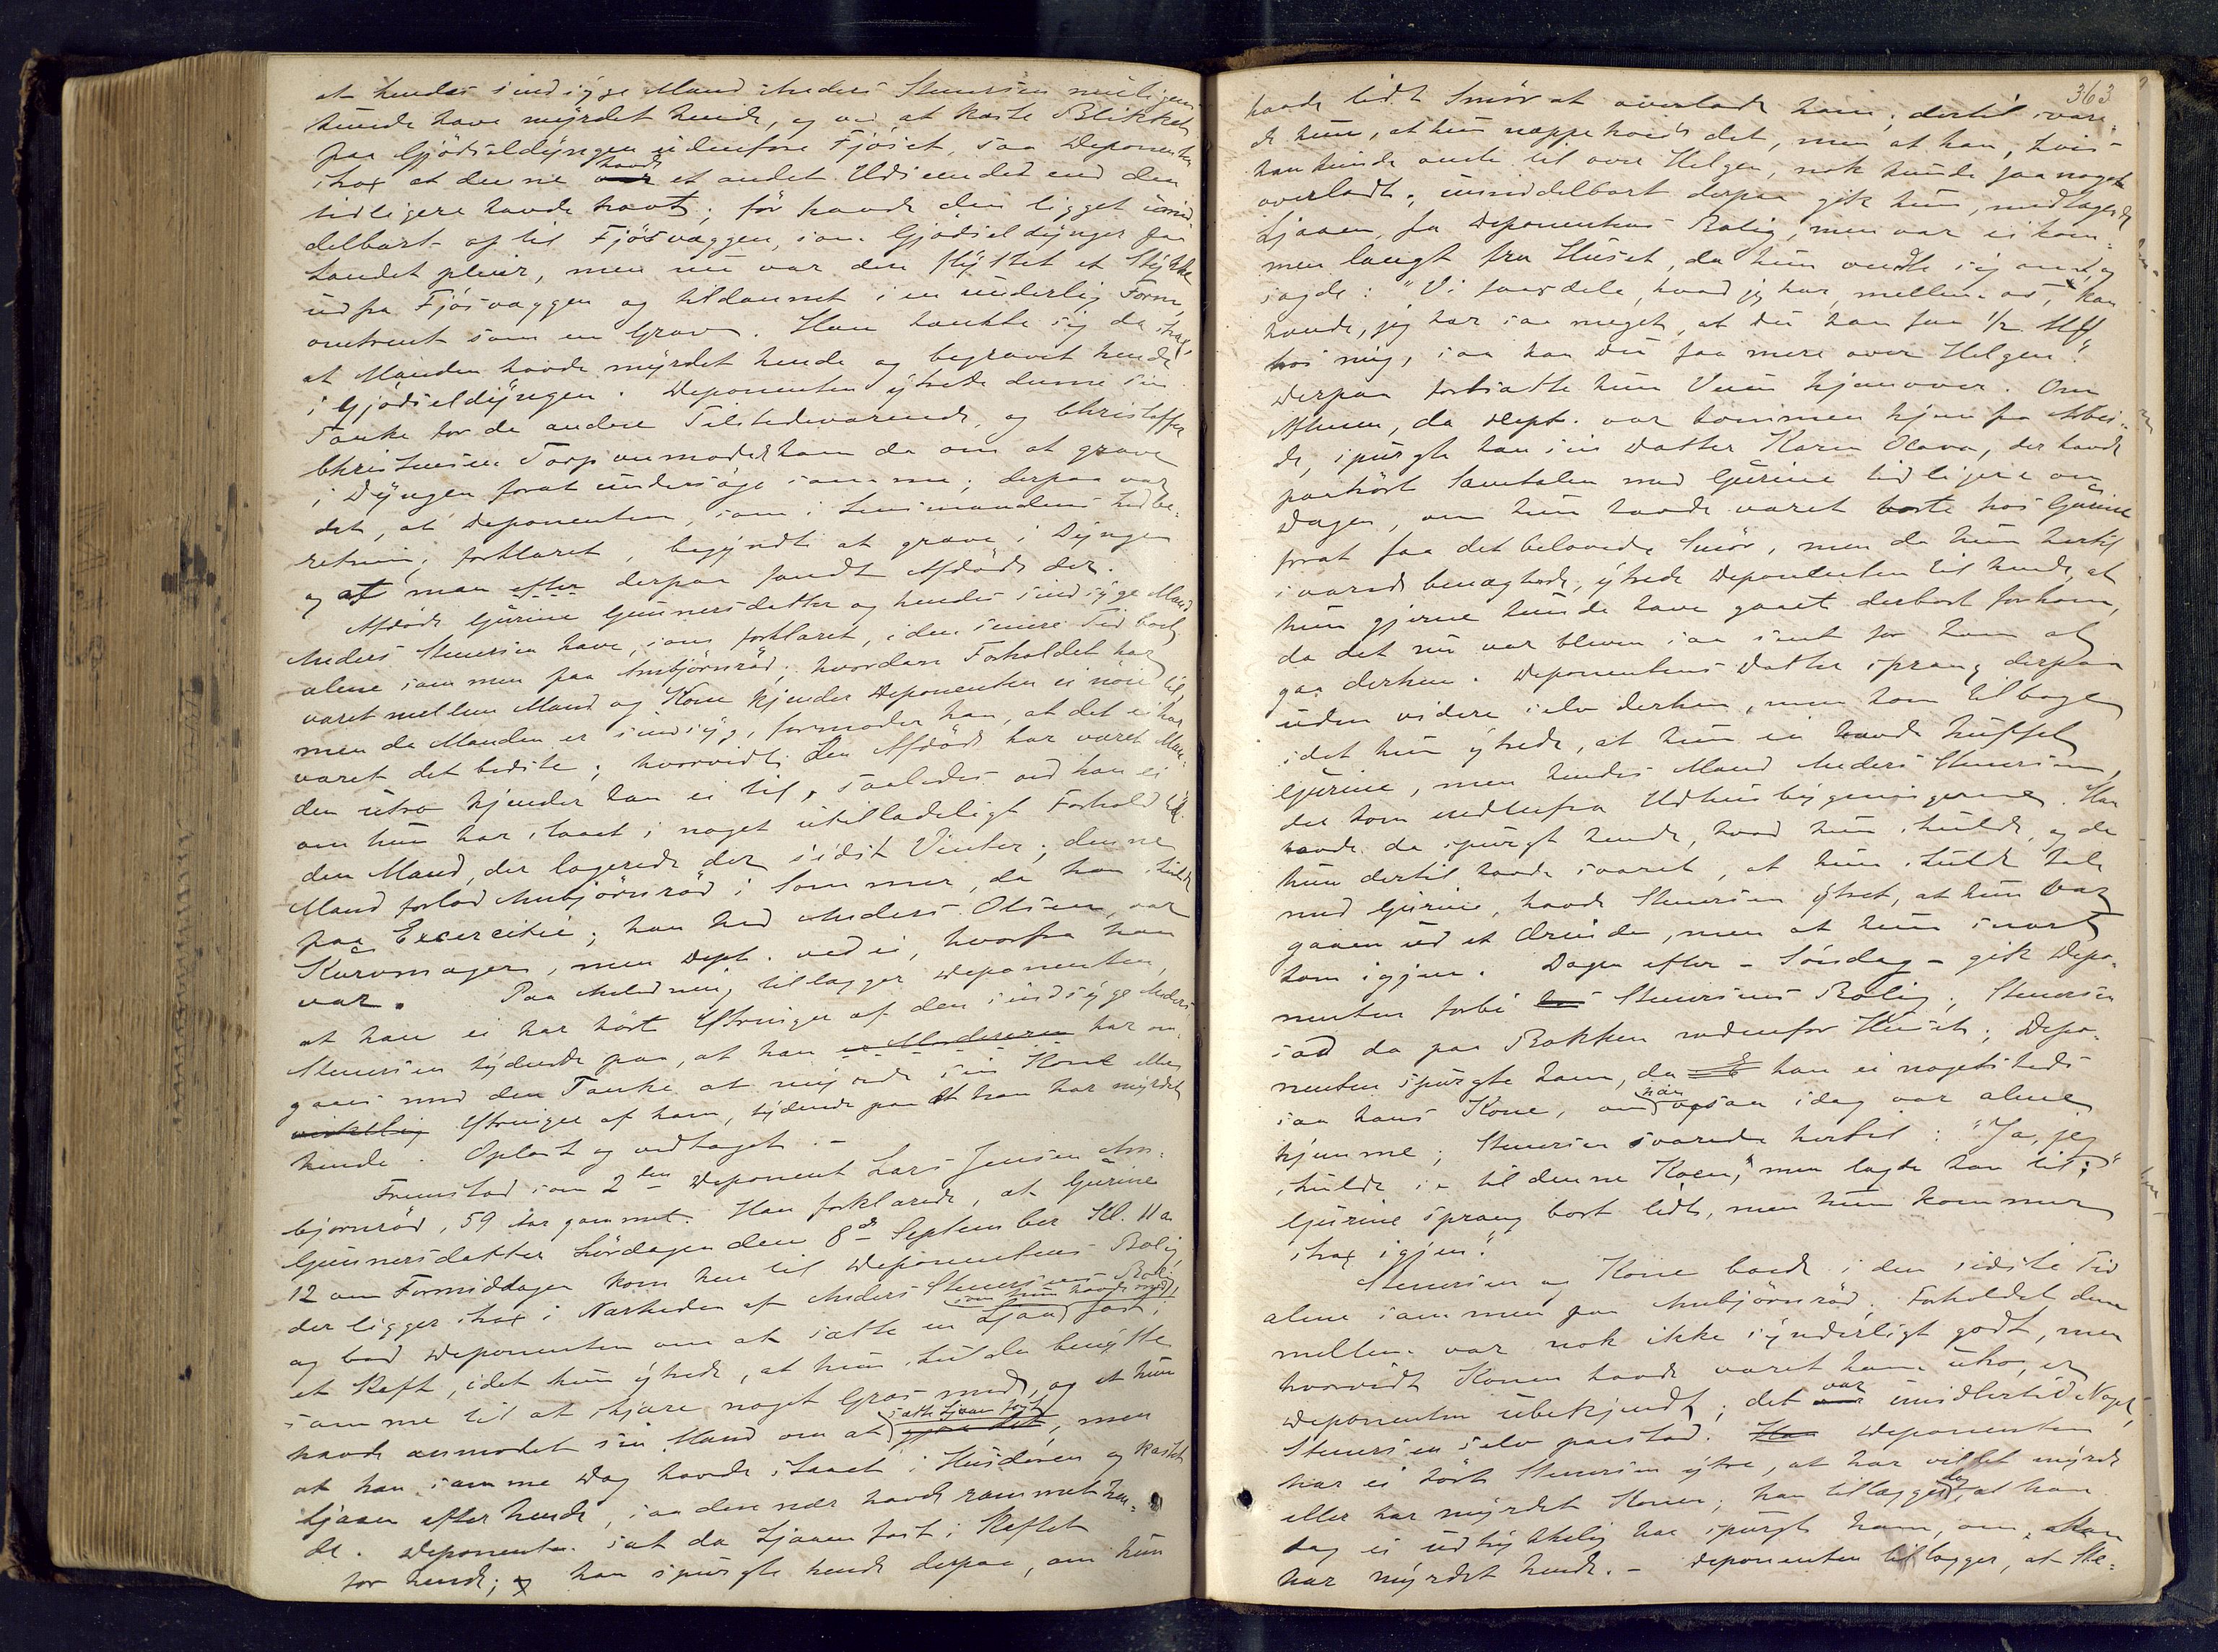 at hendes sindsyge Mand Anders Stenersen muligens
kunde have myrdet hende, og ved at kaste Blikket
paa Gjødseldyngen udenfore Fjøset, saa Deponenten
strax at denne havde et andet Udseende end den
tidligere havde havt; før havde den ligget umid-
delbart op til Fjøsvæggen, som Gjødseldynger paa
Landet pleier, men nu var den flyttet et Stykke
ud fra Fjøsvæggen og tildannet i en underlig Form,
omtrent som en Grav. Han tænkte sig da strax,
at Manden havde myrdet hende og begravet hende
i Gjødseldyngen. Deponenten ytrede denne sin
Tanke for de andre Tilstedeværende, og Christoffer
Christensen Torp anmodede ham da om at grave
i Dyngen forat undersøge samme; derpaa var
det, at Deponenten, som i Lensmandens Indbe-
retning forklaret, begyndte at grave i Dyngen
og at man efter derpaa fandt Afdøde der.
Afdøde Gurine Gunnersdatter og hendes sindsyge Mand
Anders Stenersen have, som forklaret, i den senere Tid boet
alene sammen paa Anbjørnsrød; hvordan Forholdet har
været mellem Mand og Kone kjender Deponenten ei nøie til,
men da Manden er sindsyg, formoder han, at det ei har
været det bedste; hvorvidt den Afdøde har været Man-
den utro kjender han ei til, saaledes ved han ei
om hun har staaet i noget utilladeligt Forhold til
den Mand, der logerede der sidst Vinter; denne
Mand forlod Anbjørnsrød i Sommer, da han skulde
paa Excercitie; han hed Anders Olsen, var
Kurvmager, men Dept. ved ei, hvorfra han
var. Paa Anledning tillægger Deponenten,
at han ei har hørt Ytringer af den sindsyge Anders
Stenersen tydende paa, at han er Morderen har om-
gaaes med den Tanke at myrde sin Kone eller
Ytringer af ham, tydende paa at han har myrdet
hende. Oplæst og vedtaget. –
Fremstod som 2den Deponent Lars Jensen An-
bjørnsrød, 59 Aar gammel. Han forklarede, at Gurine
Gunnersdatter Lørdagen den 8de September Kl. 11 a
12 om Formiddagen kom hen til Deponentens Bolig
der ligger strax i Nærheden af Anders Stenersens Bolig
og bad Deponenten om at sætte en Ljaa, som hun havde med, fast i
et Skaft, idet hun ytrede, at hun skulde benytte
samme til at skjære noget Græs med, og at hun
havde anmodet sin Mand om at sætte Ljaaen fast, men
at han samme Dag havde staaet i Husdøren og kastet
Ljaaen efter hende, saa den nær havde rammet hen-
de. Deponenten sat da Ljaaen fast i Skaftet
for hende; han spurgte hende derpaa, om hun
363
havde lidt Smør at overlade ham; dertil svare-
de hun, at hun neppe havde det, men at han, hvis
han kunde vente til over Helgen, nok kunde faa noget
overladt; umiddelbart derpaa gik hun, medtagende
Ljaaen, fra Deponentens Bolig, men var ei kom-
men langt fra Huset, da hun vendte sig om, og
sagde: "Vi faar dele, hvad jeg har, mellem os, kan
hende, jeg har saa meget, at Du kan faa 1/2 Mk
hos mig, saa kan Du faa mere over Helgen."
Derpaa fortsatte hun Veien hjemover. Om
Aftenen, da Dept. var kommen hjem fra Arbei-
de, spurgte han sin Datter Karen Olava, der havde
paahørt Samtalen med Gurine tidligere om
Dagen, om hun havde været borte hos Gurine
forat faa det belovede Smør, men da hun hertil
svarede benægtende, ytrede Deponenten til hende, at
hun gjerne kunde have gaaet derbort for ham,
da det nu var bleven saa sent for ham at
gaa derhen. Deponentens Datter sprang derpaa
uden videre selv derhen, men kom tilbage
idet hun ytrede, at hun ei havde truffet
Gurine, men hendes Mand Anders Stenersen,
der kom nedenfra Udhusbygningerne. Han
havde da spurgt hende, hvad hun skulde, og da
hun dertil havde svaret, at hun skulde tale
med Gurine, havde Stenersen ytret, at hun var
gaaen ud et Ærinde, men at hun snart
kom igjen. Dagen efter – Søndag – gik Depo-
nenten forbi Stenersens Bolig; Stenersen
sad da paa Bakken nedenfor Huset; Depo-
nenten spurgte ham, da han ei nogetsteds
saa hans Kone, om han ogsaa idag var alene
hjemme; Stenersen svarede hertil: "Ja, jeg
skulde se til denne Koen," men lagde han til: "
Gurine sprang bort lidt, men hun kommer
strax igjen."
Stenersen og Kone boede i den sidste Tid
alene sammen paa Anbjørnsrød. Forholdet dem
mellem var nok ikke synderligt godt, men
hvorvidt Konen havde været ham utro, er
Deponenten ubekjendt; det var imidlertid Noget,
Stenersen selv paastod. Deponenten
har ei hørt Stenersen ytre, at har villet myrde
eller har myrdet Konen; han tillægger, at han
dog ei udtrykkelig har spurgt ham, om han
har myrdet hende. – Deponenten tillægger, at Ste-